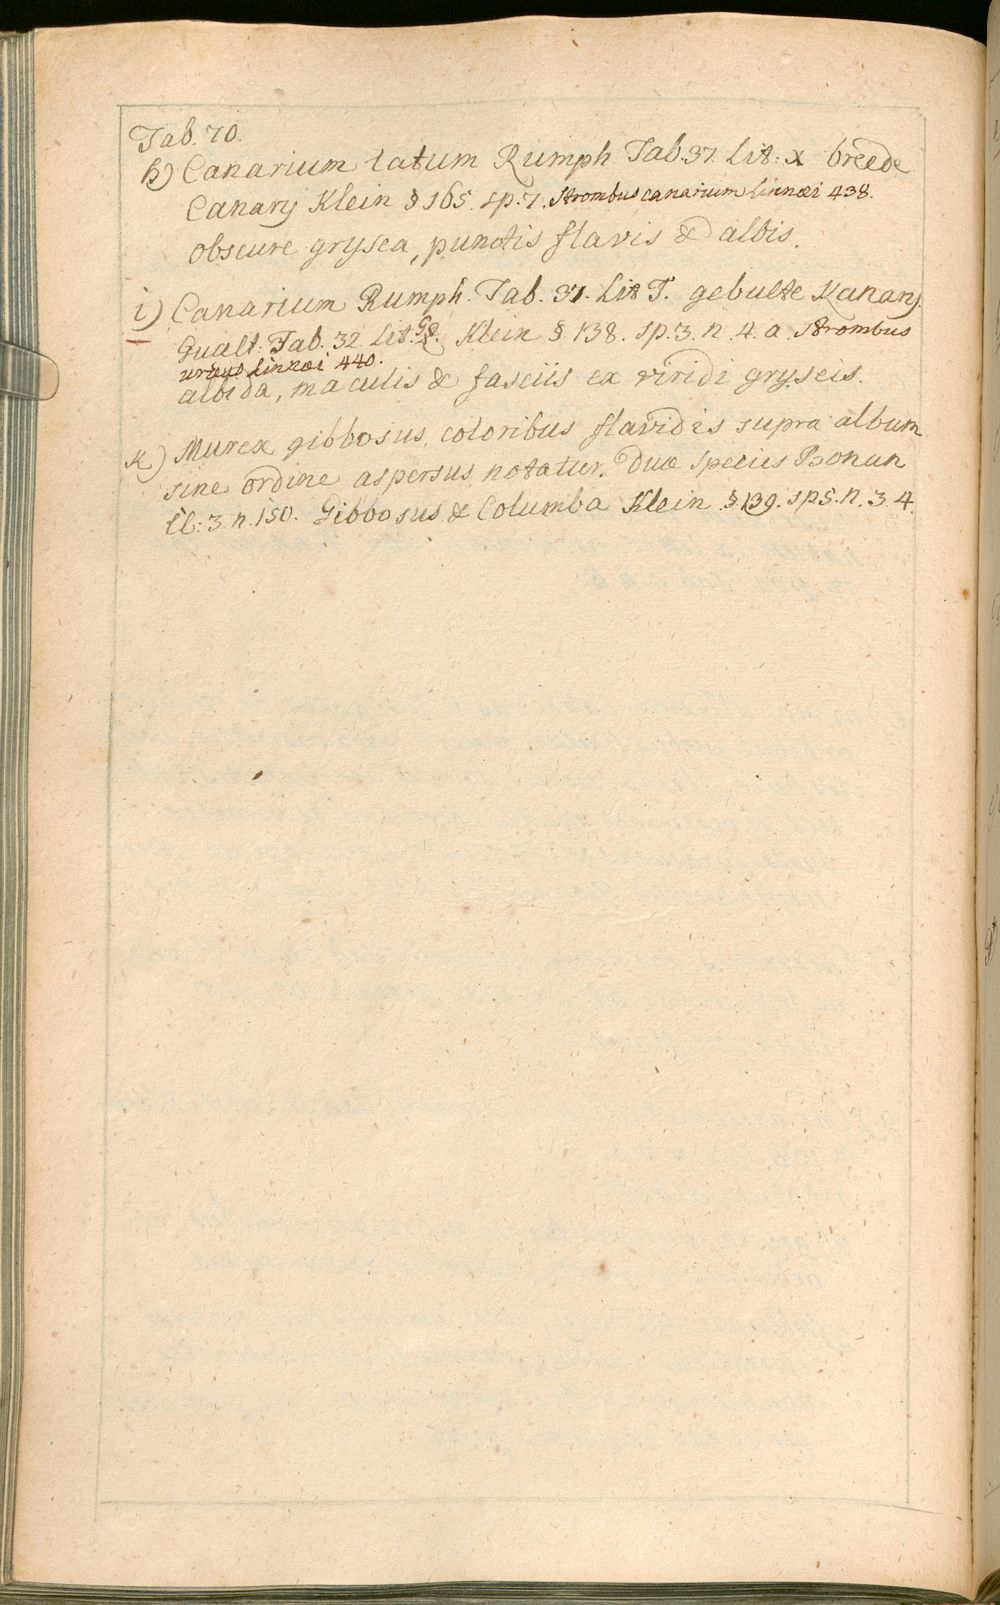 Tab. 70.
h) Canarium latum Rumph. Tab. 37. Lit: x breede
Canary Klein § 165. sp. 7. Strombus canarium Linnæi 438.
obscure grysea, punctis flavis & albis.
i) Canarium Rumph. Tab. 37. Lit T. gebulte Kanary.
Gualt: Tab. 32 Lit. Klein § 138. sp. 3. n. 4. a. Strombus
urceus Linnæi 440.
albida, maculis & fasciis ex viride gryseis.
k) Murex gibbosus, coloribus flavidis supra album
sine ordine aspersus notatur. Duæ species Bonan
Cl: 3. n. 150. Gibbosus & Columba Klein. § 139. sp 5. n. 3. 4.